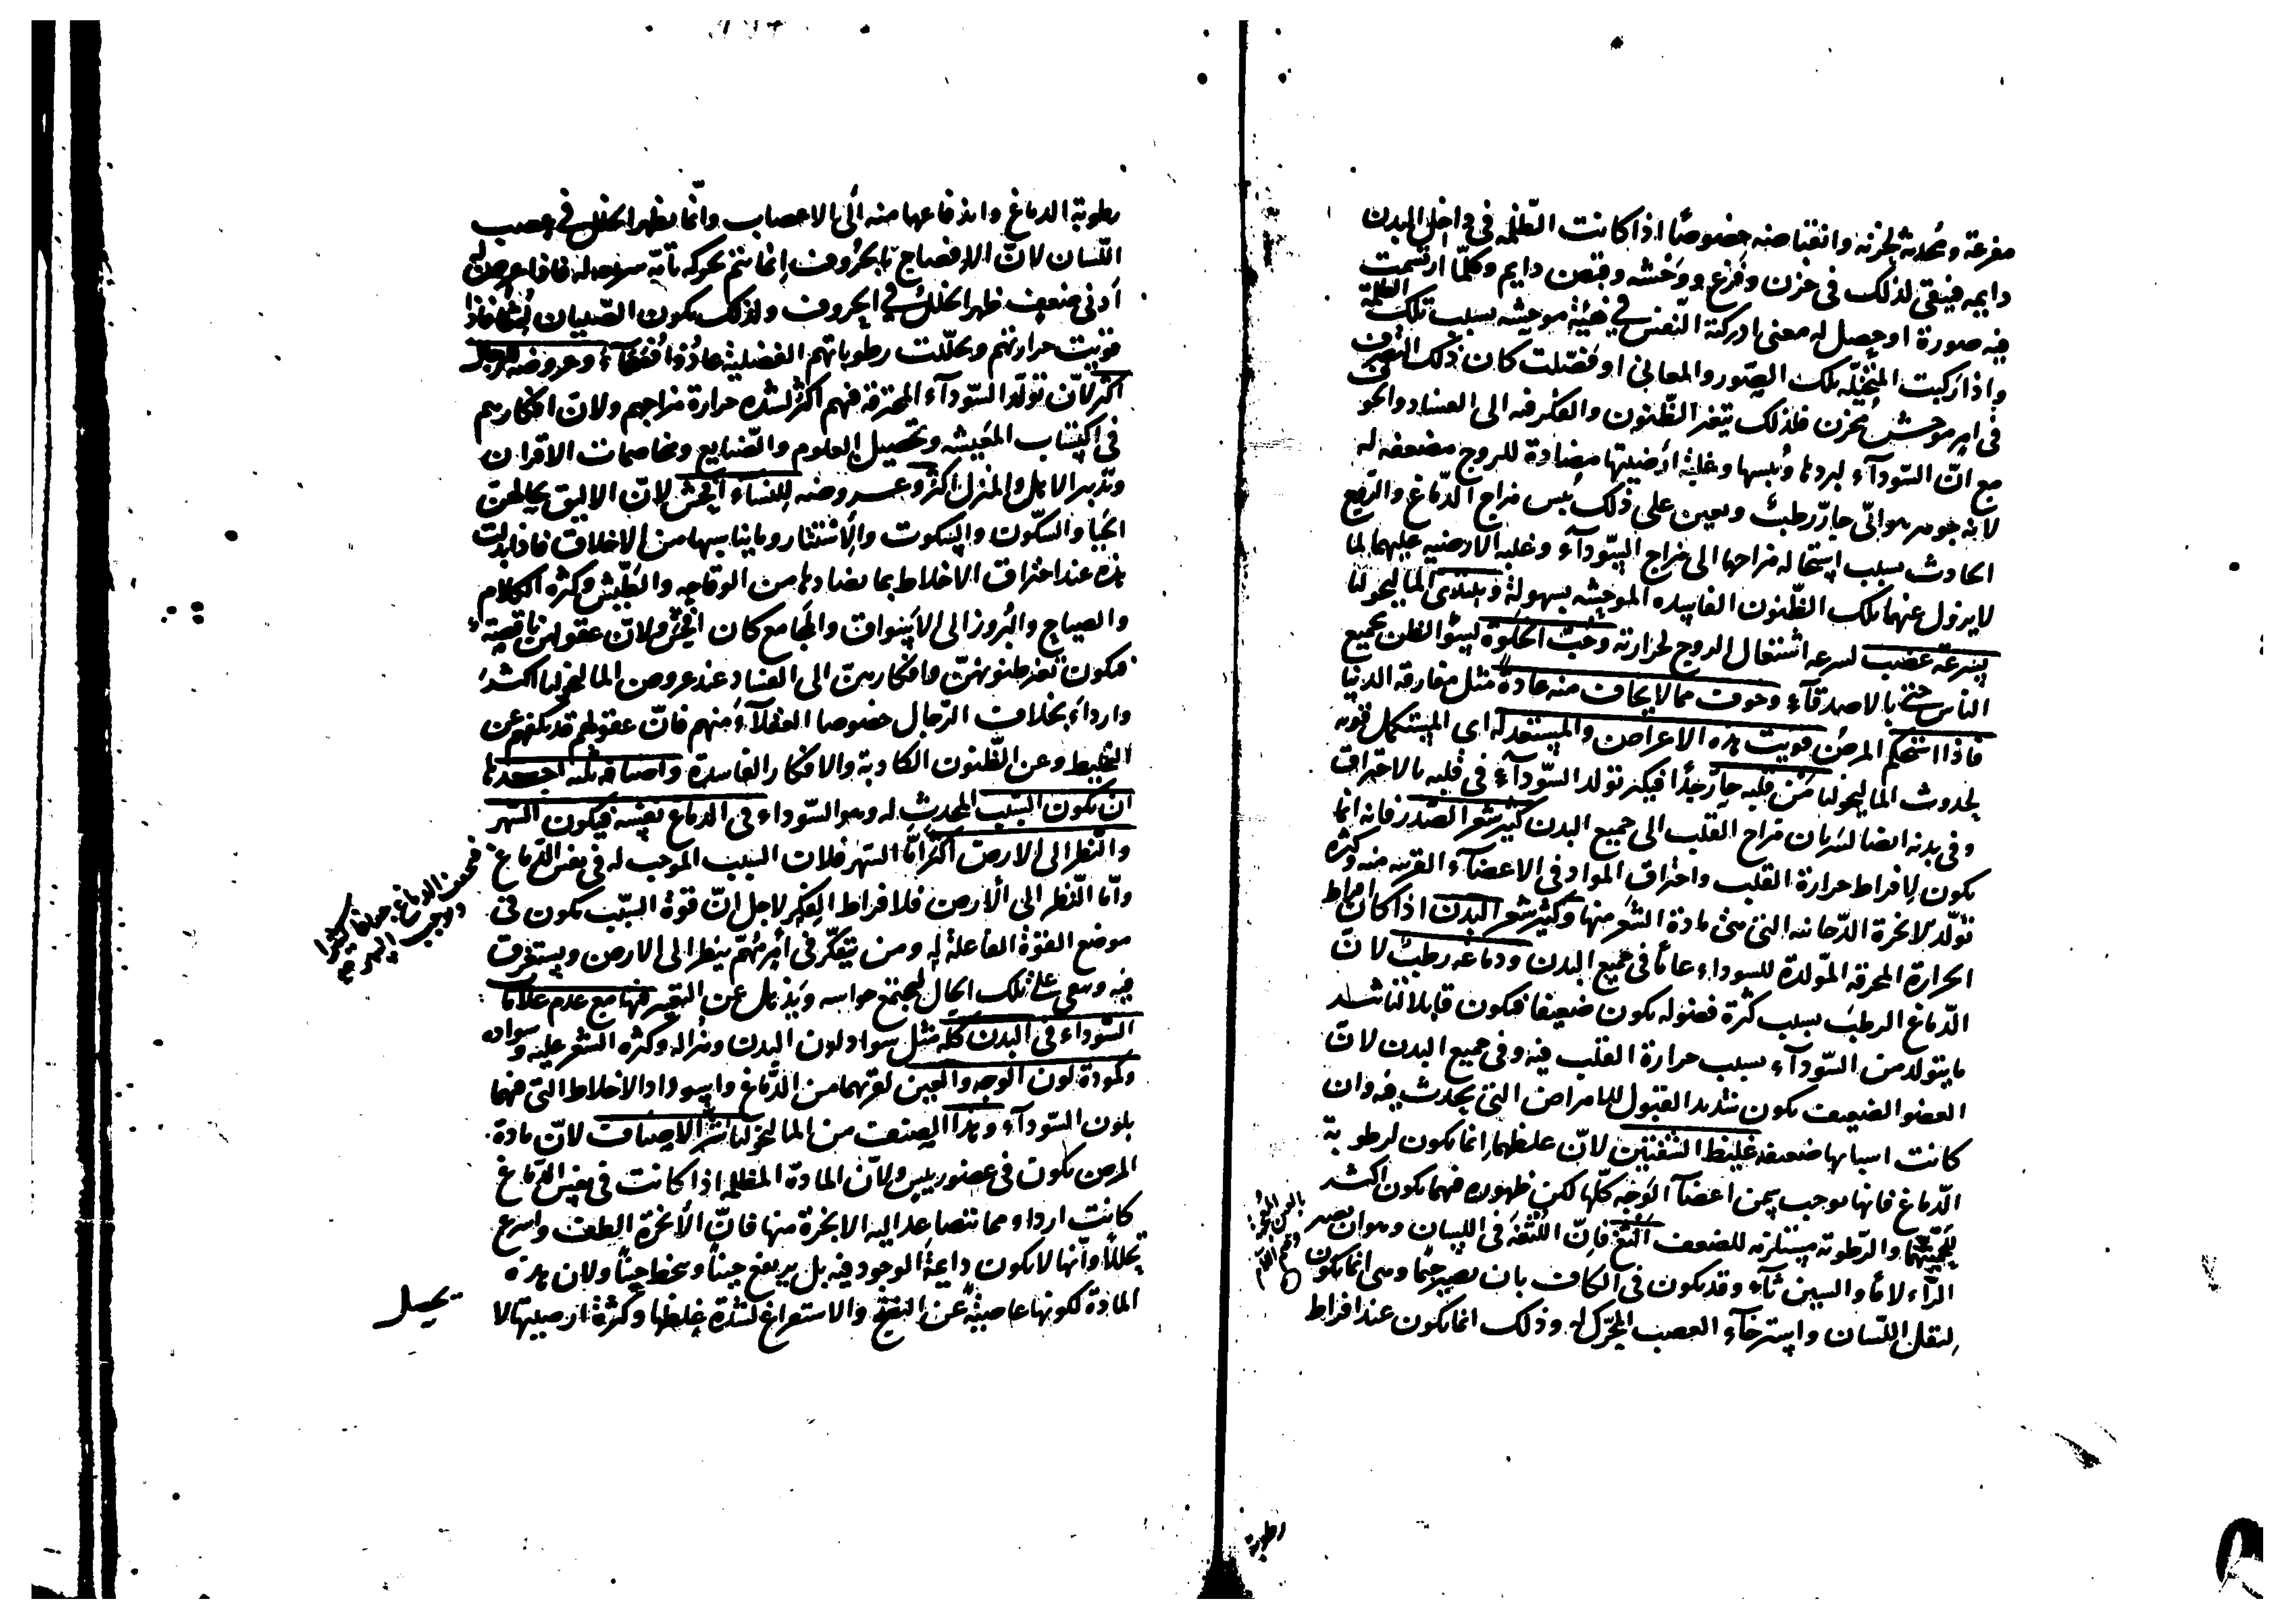 مفزعة ومحدثة لحزنه وانقباضه خصوصًا اذا كانت الظلمة فى داخل البدن
دايمه فيبقى لذلك فى حزن وفزع ووحشه وقبض دايم وكلّما ارتسمت
فيه صورة او حصل له معنى ادركته النفس فى هيئة موحشه بسبب تلك الظلمة
واذا ركبت المتخيّله تلك الصّور والمعانى او فصّلت كان ذلك التصرف
فى امر موحش محزن فلذلك يتغير الظّنون والفكر فيه الى الفساد والخوف
مع انّ السّودآء لبردها ويبسها وغلبة ارضيتها مضادة للروح مضعفه له
لانه جوهر هوائى حارّ رطب ويعين على ذلك يبس مزاج الدّماغ والروح
الحادث بسبب استحاله مزاجها الى مزاج السّودآء وغلبه الارضيه عليهما لما
لا يزول عنهما تلك الظّنون الفاسده الموحشه بسهولة ويبتدى الماليخوليا
بسرعة غضب لسرعه اشتعال الروح لحرارته وحبّ الخلوة لسوء الظن بجميع
الناس حتى بالاصدقآء وخوف مما لا يخاف منه عادةً مثل مفارقه الدنيا
فاذا استحكم المرض قويت هذه الاعراض والمستعد له اى المستكمل قوته
لحدوث الماليخوليا من قلبه حارّ جدًا فيكثر تولد السّودآء فى قلبه بالاحتراق
وفى بدنه ايضا لسَريان مزاج القلب الى جميع البدن كثير شعر الصّدر فانه انما
يكون لافراط حرارة القلب واحتراق المواد فى الاعضآء القريبه منه وكثرة
تولّد الابخرة الدّخانيه التى هى مادة الشعر منها وكثير شعر البدن اذا كان افراط
الحرارة المحرقه المولّدة للسوداء عامًا فى جميع البدن ودماغه رطب لانّ
الدّماغ الرطب بسبب كثرة فضوله يكون ضعيفا فيكون قابلا لتأثير
ما يتولد من السّودآء بسبب حرارة القلب فيه وفى جميع البدن لانّ
العضو الضعيف يكون شديد القبول للامراض التى يحدث فيه وان
كانت اسبابها ضعيفه غليظ الشفتين لانّ غلظهما انما يكون لرطوبة
الدّماغ فانها توجب سِمن اعضآء الوجه كلّها لكن ظهوره فيهما يكون اكثر
للحميّتهما والرّطوبة مستلزمه للضعف الثغ فانّ اللّثغة فى اللسان وهو ان يصير
الرّاء لامًا والسين ثآءً وقد يكون فى الكاف بان يصير جيمًا وهى انما يكون
لثقل اللّسان واسترخآء العصب المحرّك له وذلك انما يكون عند افراط
رطوبة
رطوبة الدماغ واندفاعها منه الى الاعصاب وانّما يظهر الخلل فى عصب
اللّسان لانّ الافصاح بالحروف انما يتم بحركه تامّه فاذا عرض له
ادنى ضعف ظهر الخلل فى الحروف ولذلك يكون الصّبيان لُثغًا فاذا
قويت حرارتهم وتحلّلت رطوباتهم الفضليه عادوا فُصَحآء وعروضه للرجال
اكثر لانّ تولّد السّودآء المحترقة فيهم اكثر لشده حرارة مزاجهم ولانّ افكارهم
فى اكتساب المعيشه وتحصيل العلوم والصّنايع ومخاصمات الاقران
وتدبير الاهل والمنزل اكثر وعروضه للنساء افحش لانّ الاليق بحالهنّ
الحيا والسّكون والسكوت والاستتار وما يناسبها من الاخلاق فاذا بدلت
هذه عند احتراق الاخلاط بما يضادها من الوقاحه والطّيش وكثرة الكلام
والصياح والبُروز الى الاسواق والمجامع كان افحش ولانّ عقولهنّ ناقصة
فيكون تغير ظنونهنّ وافكارهنّ الى الفساد عند عروض الماليخوليا اشدّ
واردأ بخلاف الرّجال خصوصا العقلآء منهم فانّ عقولهم قد يكفهم عن
التخليط وعن الظّنون الكاذبة والافكار الفاسدة واصنافه ثلثه احدها
ان يكون السّبب المحدث له وهو السّوداء فى الدماغ نفسه فيكون السّهر
والنظر الى الارض اكثر امّا السّهر فلان السبب الموجب له فى نفس الدّماغ
وامّا النّظر الى الارض فلافراط الفكر لاجل انّ قوة السّبب يكون فى
موضع القوّة الفاعلة له ومن يتفكّر فى امر مهمّ ينظر الى الارض ويستغرق
فيه ويبقى على تلك الحال ليجتمع حواسه ويذهل عن التغير فيها مع عدم علامات
السّوداء فى البدن كلّه مثل سواد لون البدن وهزاله وكثرة الشعر عليه وسواده
وكمودة لون الوجه والعين لقربهما من الدّماغ واسوداد الاخلاط التى فيها
بلون السّودآء وهذا الصنف من الماليخوليا شرّ الاصناف لانّ مادة
المرض يكون فى عضو رييس ولانّ المادّة المظلمه اذا كانت فى نفس الدّماغ
كانت ارداء مما يتصاعد اليه الابخرة منها فانّ الابخرة الطف واسرع
تحللًا وانها لا يكون دايمة الوجود فيه بل يرتفع حينًا وينحط حينًا ولان هذه
المادة لكونها عاصيةً عن النضج والاستفراغ لشدة غلظها وكثرة ارضيتها لا
يحصل